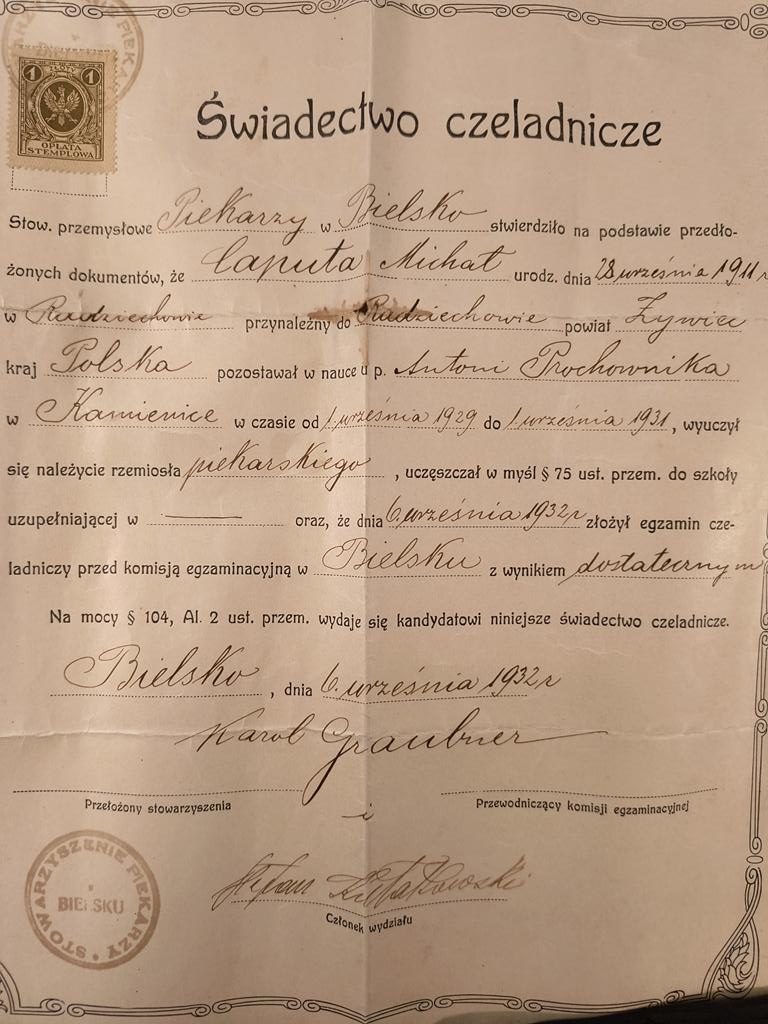 1 ZŁOTY 1
OPŁATA
STEMPLOWA
Świadectwo czeladnicze
Stow. przemysłowe Piekarzy w Bielsko stwierdziło na podstawie przedło-
żonych dokumentów, że Caputa Michał urodz. dnia 28 września 1911 r
w Radziechowie przynależny do Radziechowie powiat Żywiec
kraj Polska pozostawał w nauce u p. Antoni Prochownika
w Kamienice w czasie od 1. września 1929 do 1. września 1931, wyuczył
się należycie rzemiosła piekarskiego, uczęszczał w myśl § 75 ust. przem. do szkoły
uzupełniającej w — oraz, że dnia 6. września 1932 r złożył egzamin cze-
ladniczy przed komisją egzaminacyjną w Bielsku z wynikiem dostatecznym
Na mocy § 104, Al. 2 ust. przem. wydaje się kandydatowi niniejsze świadectwo czeladnicze.
Bielsko, dnia 6. września 1932 r
Karol Graubner
Przełożony stowarzyszenia i Przewodniczący komisji egzaminacyjnej
Stefan
Członek wydziału
STOWARZYSZENIE PIEKARZY
BIELSKU